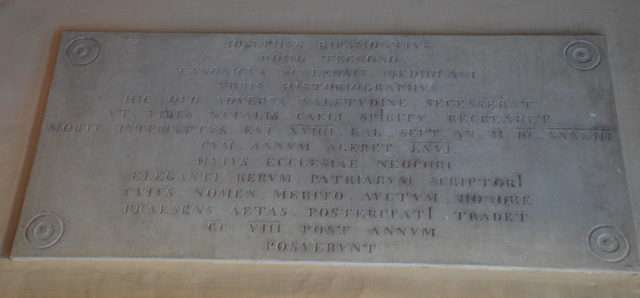 IOSEPHVS RIPAMONTIVS
HOMO TEGNONO
CANONICVS SCALENSIS MEDIOLANI
VRBIS HISTORIOGRAPHVS
HIC QVO ADVERSA VALETVDINE SECESSERAT
VT VIRES NATALIS CAELI SPIRITV RECREARET
MORTE INTERCEPTVS EST XVIIII KAL SEPT AN M DC
CVM ANNVM AGERET LXVI
HVIVS ECCLESIAE NEOCORI
ELEGANTI RERVM PATRIARVM SCRIPTORI
CVIVS NOMEN MERITO AVCTVM HONORE
PRAESENS AETAS POSTERITATI TRADET
CC VIII POST ANNVM
POSVERVNT